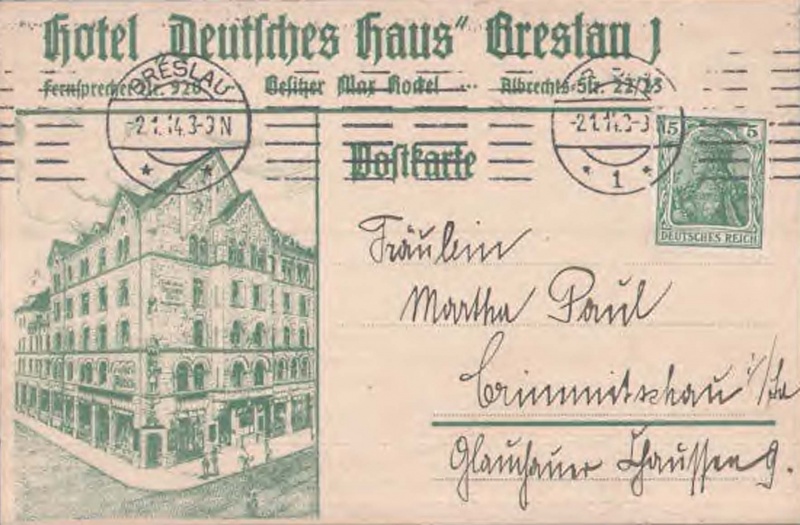 Hotel „Deutsches Haus“ Breslau 1
Fernsprecher Nr. 920 Besitzer Max Rockel Albrechts-Str. 22/23
BRESLAU
-2.1.14.3-3N
* 1 *
-2.1.14.3-3N
* 1 *
5 5
DEUTSCHES REICH
Postkarte
Fräulein
Martha Paul
Crimmitschau i/Sa
Glauchauer Chaussee 9.